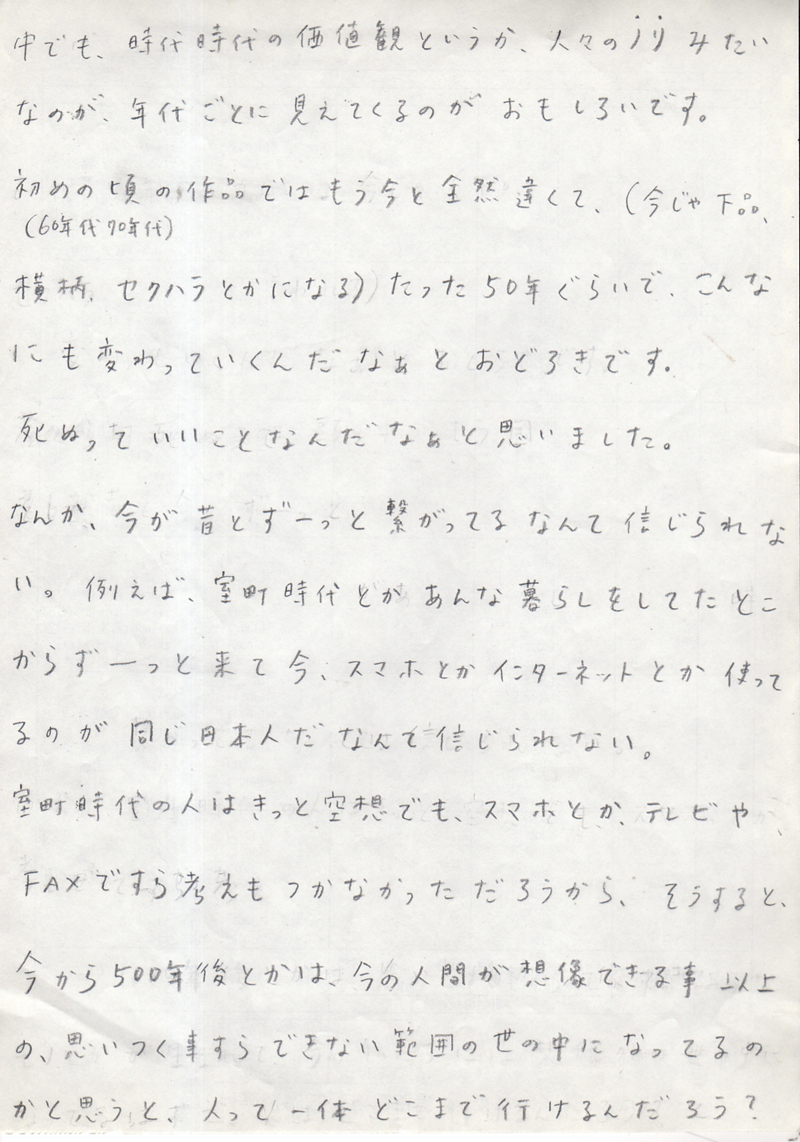 中でも、時代時代の価値観というか、人々のノリみたい
なのが、年代ごとに見えてくるのがおもしろいです。
初めの頃の作品ではもう今と全然違くて、(今じゃ下品、
(60年代70年代)
横柄、セクハラとかになる)たった50年ぐらいで、こんな
にも変わっていくんだなぁとおどろきです。
死ぬっていいことなんだなぁと思いました。
なんか、今が昔とずーっと繋がってるなんて信じられな
い。例えば、室町時代とかあんな暮らしをしてたとこ
からずーっと来て今、スマホとかインターネットとか使って
るのが同じ日本人だなんて信じられない。
室町時代の人はきっと空想でも、スマホとか、テレビや、
FAXですら考えもつかなかっただろうから、そうすると、
今から500年後とかは、今の人間が想像できる事以上
の、思いつく事すらできない範囲の世の中になってるの
かと思うと、人って一体どこまで行けるんだろう?